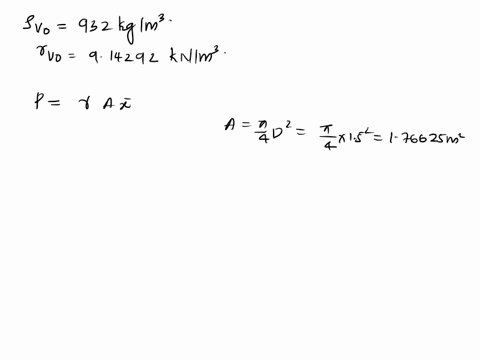 ρ_vo = 932 kg/m³.
γ_vo = 9.14292 kN/m³.
P = γ A x̄
A = π/4 D² = π/4 × 1.5² = 1.76625 m²